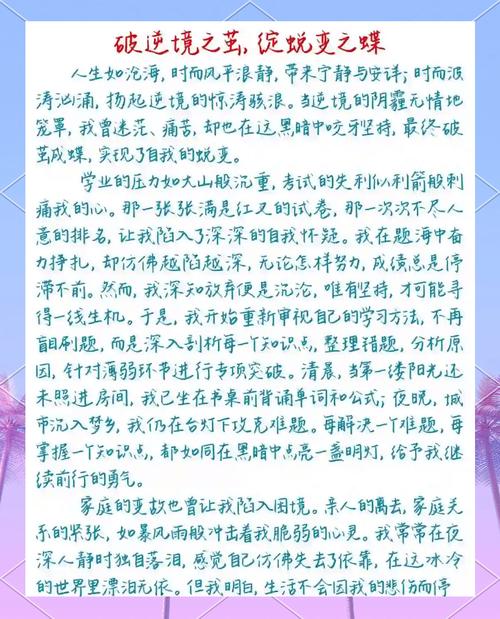 破逆境之茧,绽蜕变之蝶
人生如沧海,时而风平浪静,带来宁静与安详;时而波
涛汹涌,扬起逆境的惊涛骇浪。当逆境的阴霾无情地
笼罩,我曾迷茫、痛苦,却也在这黑暗中咬牙坚持,最终破
茧成蝶,实现了自我的蜕变。
学业的压力如大山般沉重,考试的失利似利箭般刺
痛我的心。那一张张满是红叉的试卷,那一次次不尽人
意的排名,让我陷入了深深的自我怀疑。我在题海中奋
力挣扎,却仿佛越陷越深,无论怎样努力,成绩总是停
滞不前。然而,我深知放弃便是沉沦,唯有坚持,才可能寻
得一线生机。于是,我开始重新审视自己的学习方法,不再
盲目刷题,而是深入剖析每一个知识点,整理错题,分析原
因,针对薄弱环节进行专项突破。清晨,当第一缕阳光还
未照进房间,我已坐在书桌前背诵单词和公式;夜晚,城
市沉入梦乡,我仍在台灯下攻克难题。每解决一个难题,每
掌握一个知识点,都如同在黑暗中点亮一盏明灯,给予我继
续前行的勇气。
家庭的变故也曾让我陷入困境。亲人的离去,家庭关
系的紧张,如暴风雨般冲击着我脆弱的心灵。我常常在夜
深人静时独自落泪,感觉自己仿佛失去了依靠,在这冰冷
的世界里漂泊无依。但我明白,生活不会因我的悲伤而停